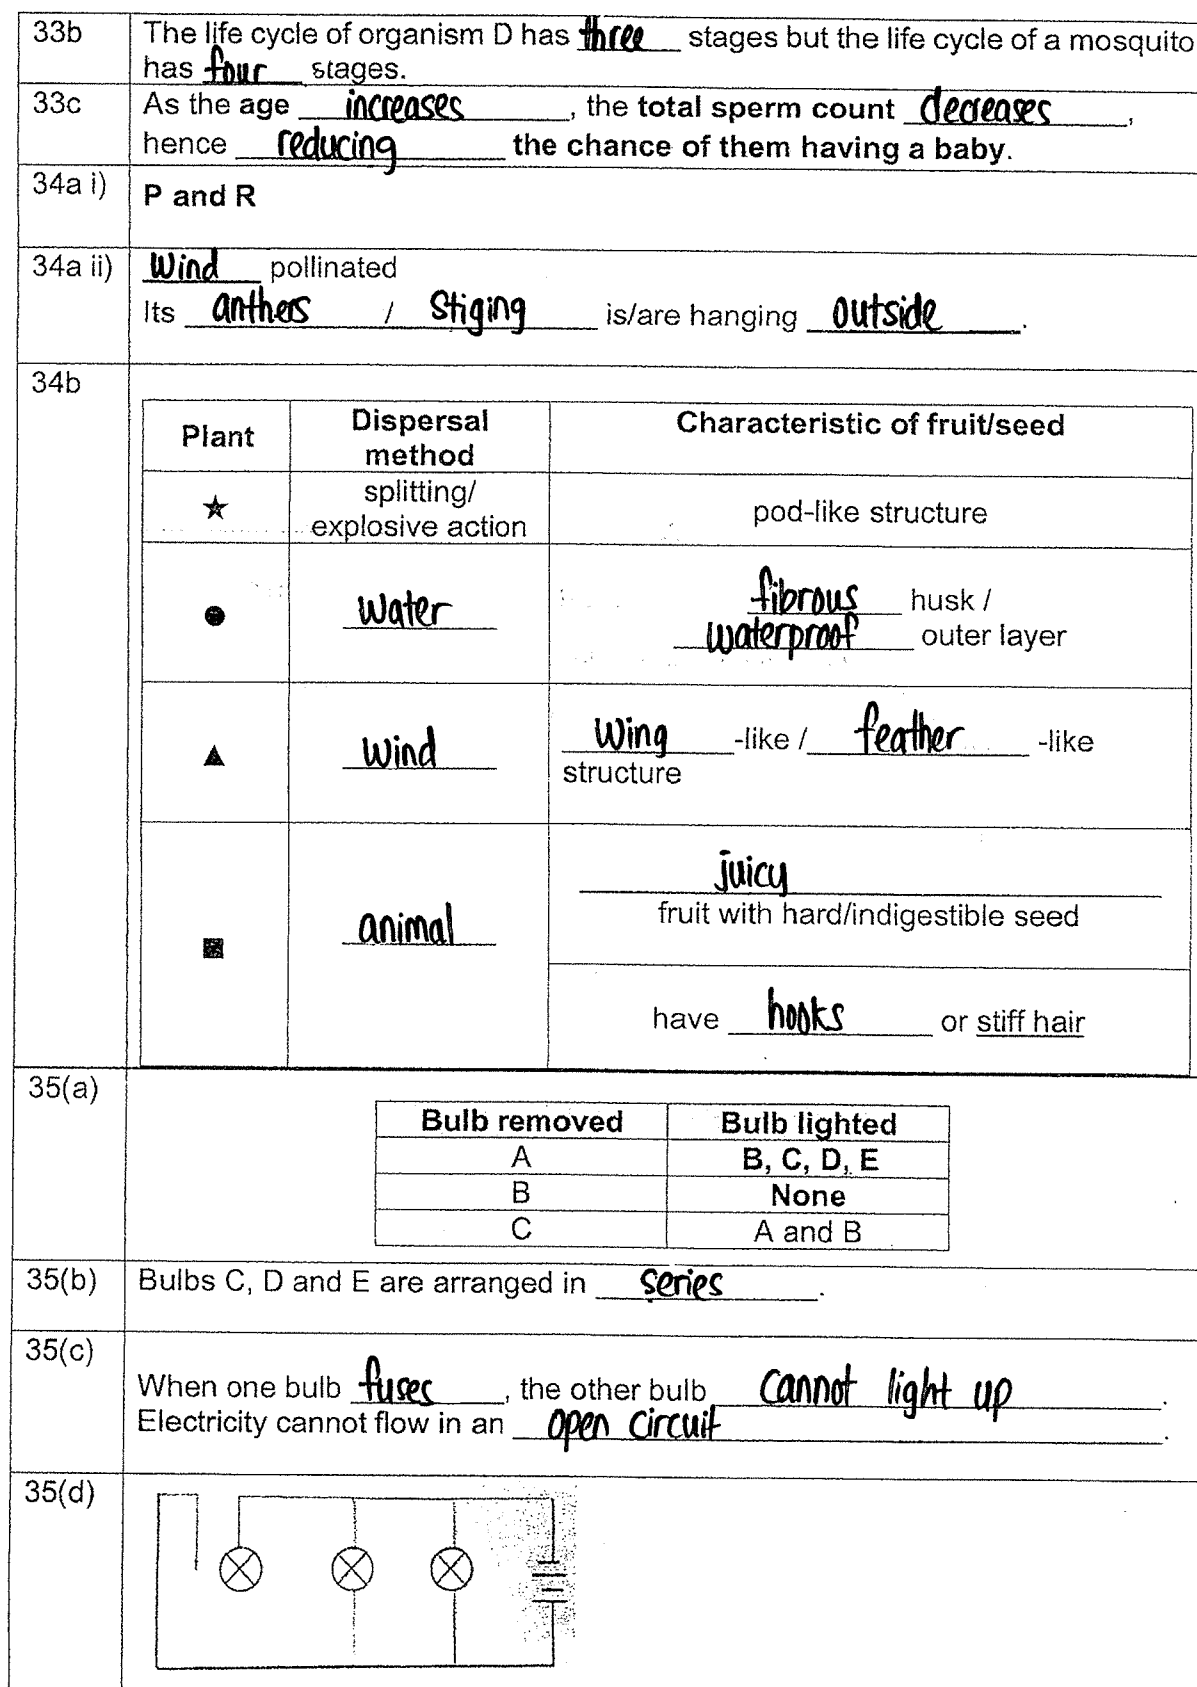 33b
The life cycle of organism D has three stages but the life cycle of a mosquito
has four stages.
33c
As the age increases, the total sperm count decreases,
hence reducing the chance of them having a baby.
34a i)
P and R
34a ii)
Wind pollinated
Its anthers / Stiging is/are hanging outside.
34b
Plant
Dispersal
method
Characteristic of fruit/seed
★
splitting/
explosive action
pod-like structure
●
water
fibrous husk /
waterproof outer layer
▲
wind
wing-like / feather-like
structure
■
animal
juicy
fruit with hard/indigestible seed
have hooks or stiff hair
35(a)
Bulb removed Bulb lighted
A B, C, D, E
B None
C A and B
35(b)
Bulbs C, D and E are arranged in series.
35(c)
When one bulb fuses, the other bulb cannot light up.
Electricity cannot flow in an open circuit.
35(d)